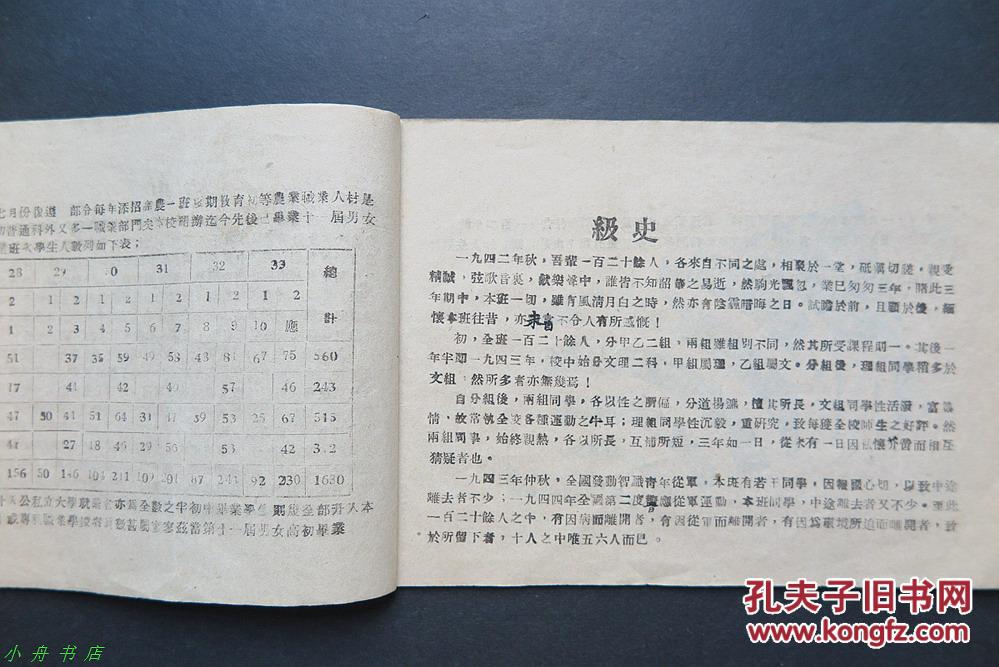 七月份復遵 部令每年添招 農一班 期教育初等農業職業人材是
普通科外又多一職業部門矣本校 辦迄今先後已畢業十一屆男女
班次學生人數列如下表；
28 29 30 31 32 33 總計
2 1 2 1 2 1 2 1 2 1 2
1 2 3 4 5 6 7 8 9 10 應
51 37 35 59 49 53 43 81 67 75 560
17 41 42 40 57 46 243
47 50 44 51 64 31 47 39 53 25 67 515
41 27 18 46 29 51 58 42 312
156 50 146 104 211 109 201 87 243 92 230 1630
公私立大學 亦為全數之半初中畢業學生則 全部升入本
業學校者 當第十一屆男女高初畢業
級史
一九四二年秋，吾輩一百二十餘人，各來自不同之處，相聚於一堂，砥礪切磋，親愛
精誠，弦歌音裏，歡樂聲中，誰皆不知韶華之易逝，然駒光飄忽，業已匆匆三年，際此三
年期中，本班一切，雖有風清月白之時，然亦有陰霾暗晦之日。試瞻於前，且顧於後，緬
懷本班往昔，亦未嘗不令人有所感慨！
初，全班一百二十餘人，分甲乙二組，兩組雖組別不同，然其所受課程則一。其後一
年半即一九四三年，校中始分文理二科，甲組屬理，乙組屬文。分組後，理組同學稍多於
文組，然所多者亦無幾焉！
自分組後，兩組同學，各以性之所傴，分道揚鑣，擅其所長，文組同學性活潑，富
情，故常執全校各種運動之牛耳；理組同學性沉毅，重研究，致每獲全校師生之好評。然
兩組同學，始終親熱，各以所長，互補所短，三年如一日，從未有一日因私懷芥蒂而相互
猜疑者也。
一九四三年仲秋，全國發動智識青年從軍，本班有若干同學，因報國心切，以致中途
離去者不少；一九四四年全國第二度響應從軍運動，本班同學，中途離去者又不少。至此
一百二十餘人之中，有因病而離開者，有因從軍而離開者，有因為環境所迫而離開者，致
於所留下者，十人之中唯五六人而已。
小舟书店
孔夫子旧书网
www.kongfz.com